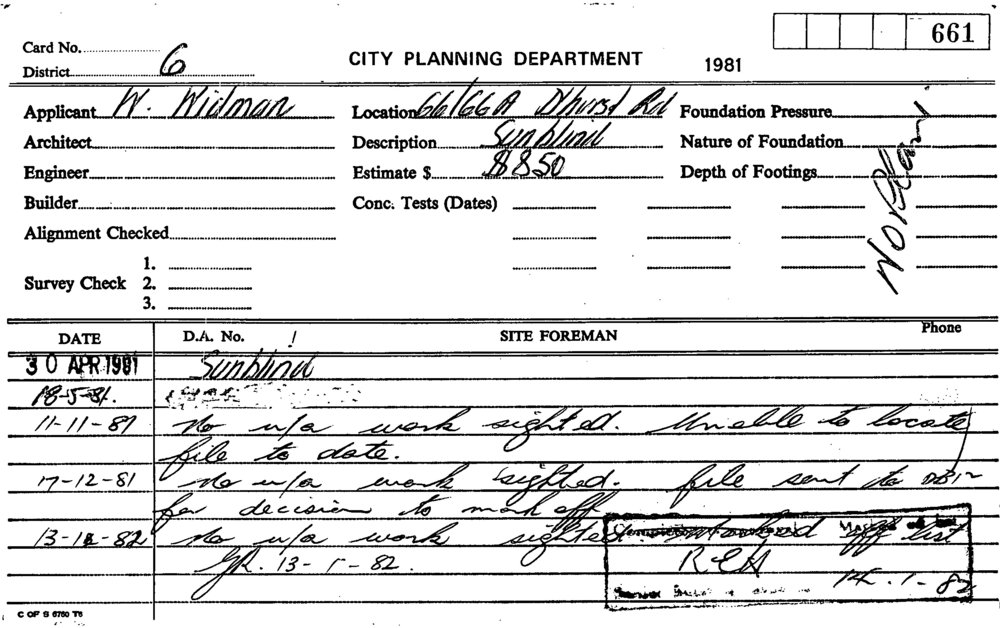 661
Card No.
District 6
CITY PLANNING DEPARTMENT 1981
Applicant W. Widman Location 66/66A D'hurst Rd Foundation Pressure
Architect Description Sunblind Nature of Foundation
Engineer Estimate $ $850 Depth of Footings
Builder Conc. Tests (Dates)
No Plans
Alignment Checked
1.
Survey Check 2.
3.
DATE D.A. No. SITE FOREMAN Phone
30 APR 1981 Sunblind
18-5-81.
11-11-81 No u/a work sighted. Unable to locate
file to date.
17-12-81 No u/a work sighted. file sent to
for decision to mark off
13-1-82 No u/a work sighted. off list
GR. 13-1-82.
REH
14.1-82
C OF S 6750 T6